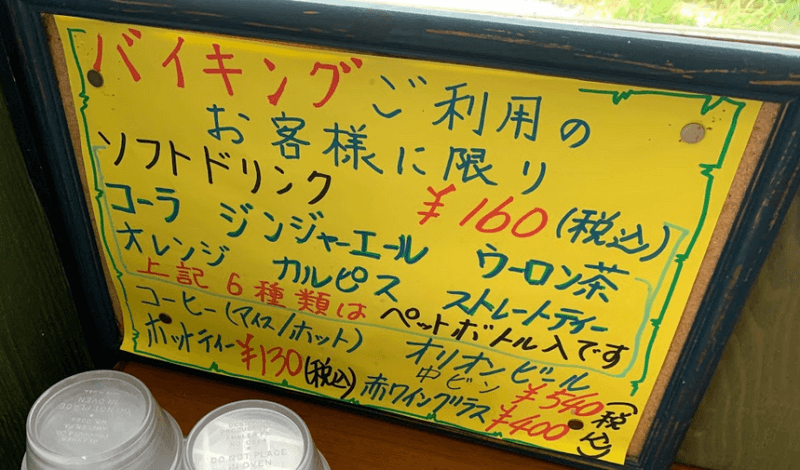 バイキングご利用の
お客様に限り
ソフトドリンク ¥160(税込)
コーラ ジンジャーエール ウーロン茶
オレンジ カルピス ストレートティー
上記6種類はペットボトル入です
コーヒー(アイス/ホット) オリオンビール
中ビン ¥540
ホットティー¥130(税込) 赤ワイングラス ¥400
(税込)
DO NOT PLACE